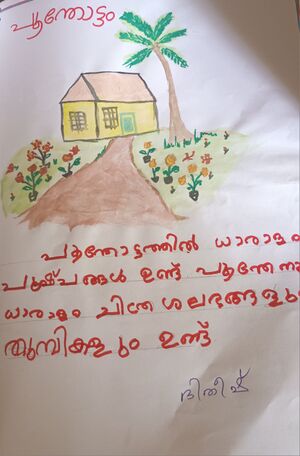 പൂന്തോട്ടം
പൂന്തോട്ടത്തിൽ ധാരാളം
പുഷ്പങ്ങൾ ഉണ്ട്
ധാരാളം ചിത്രശലഭങ്ങളും
തുമ്പികളും ഉണ്ട്